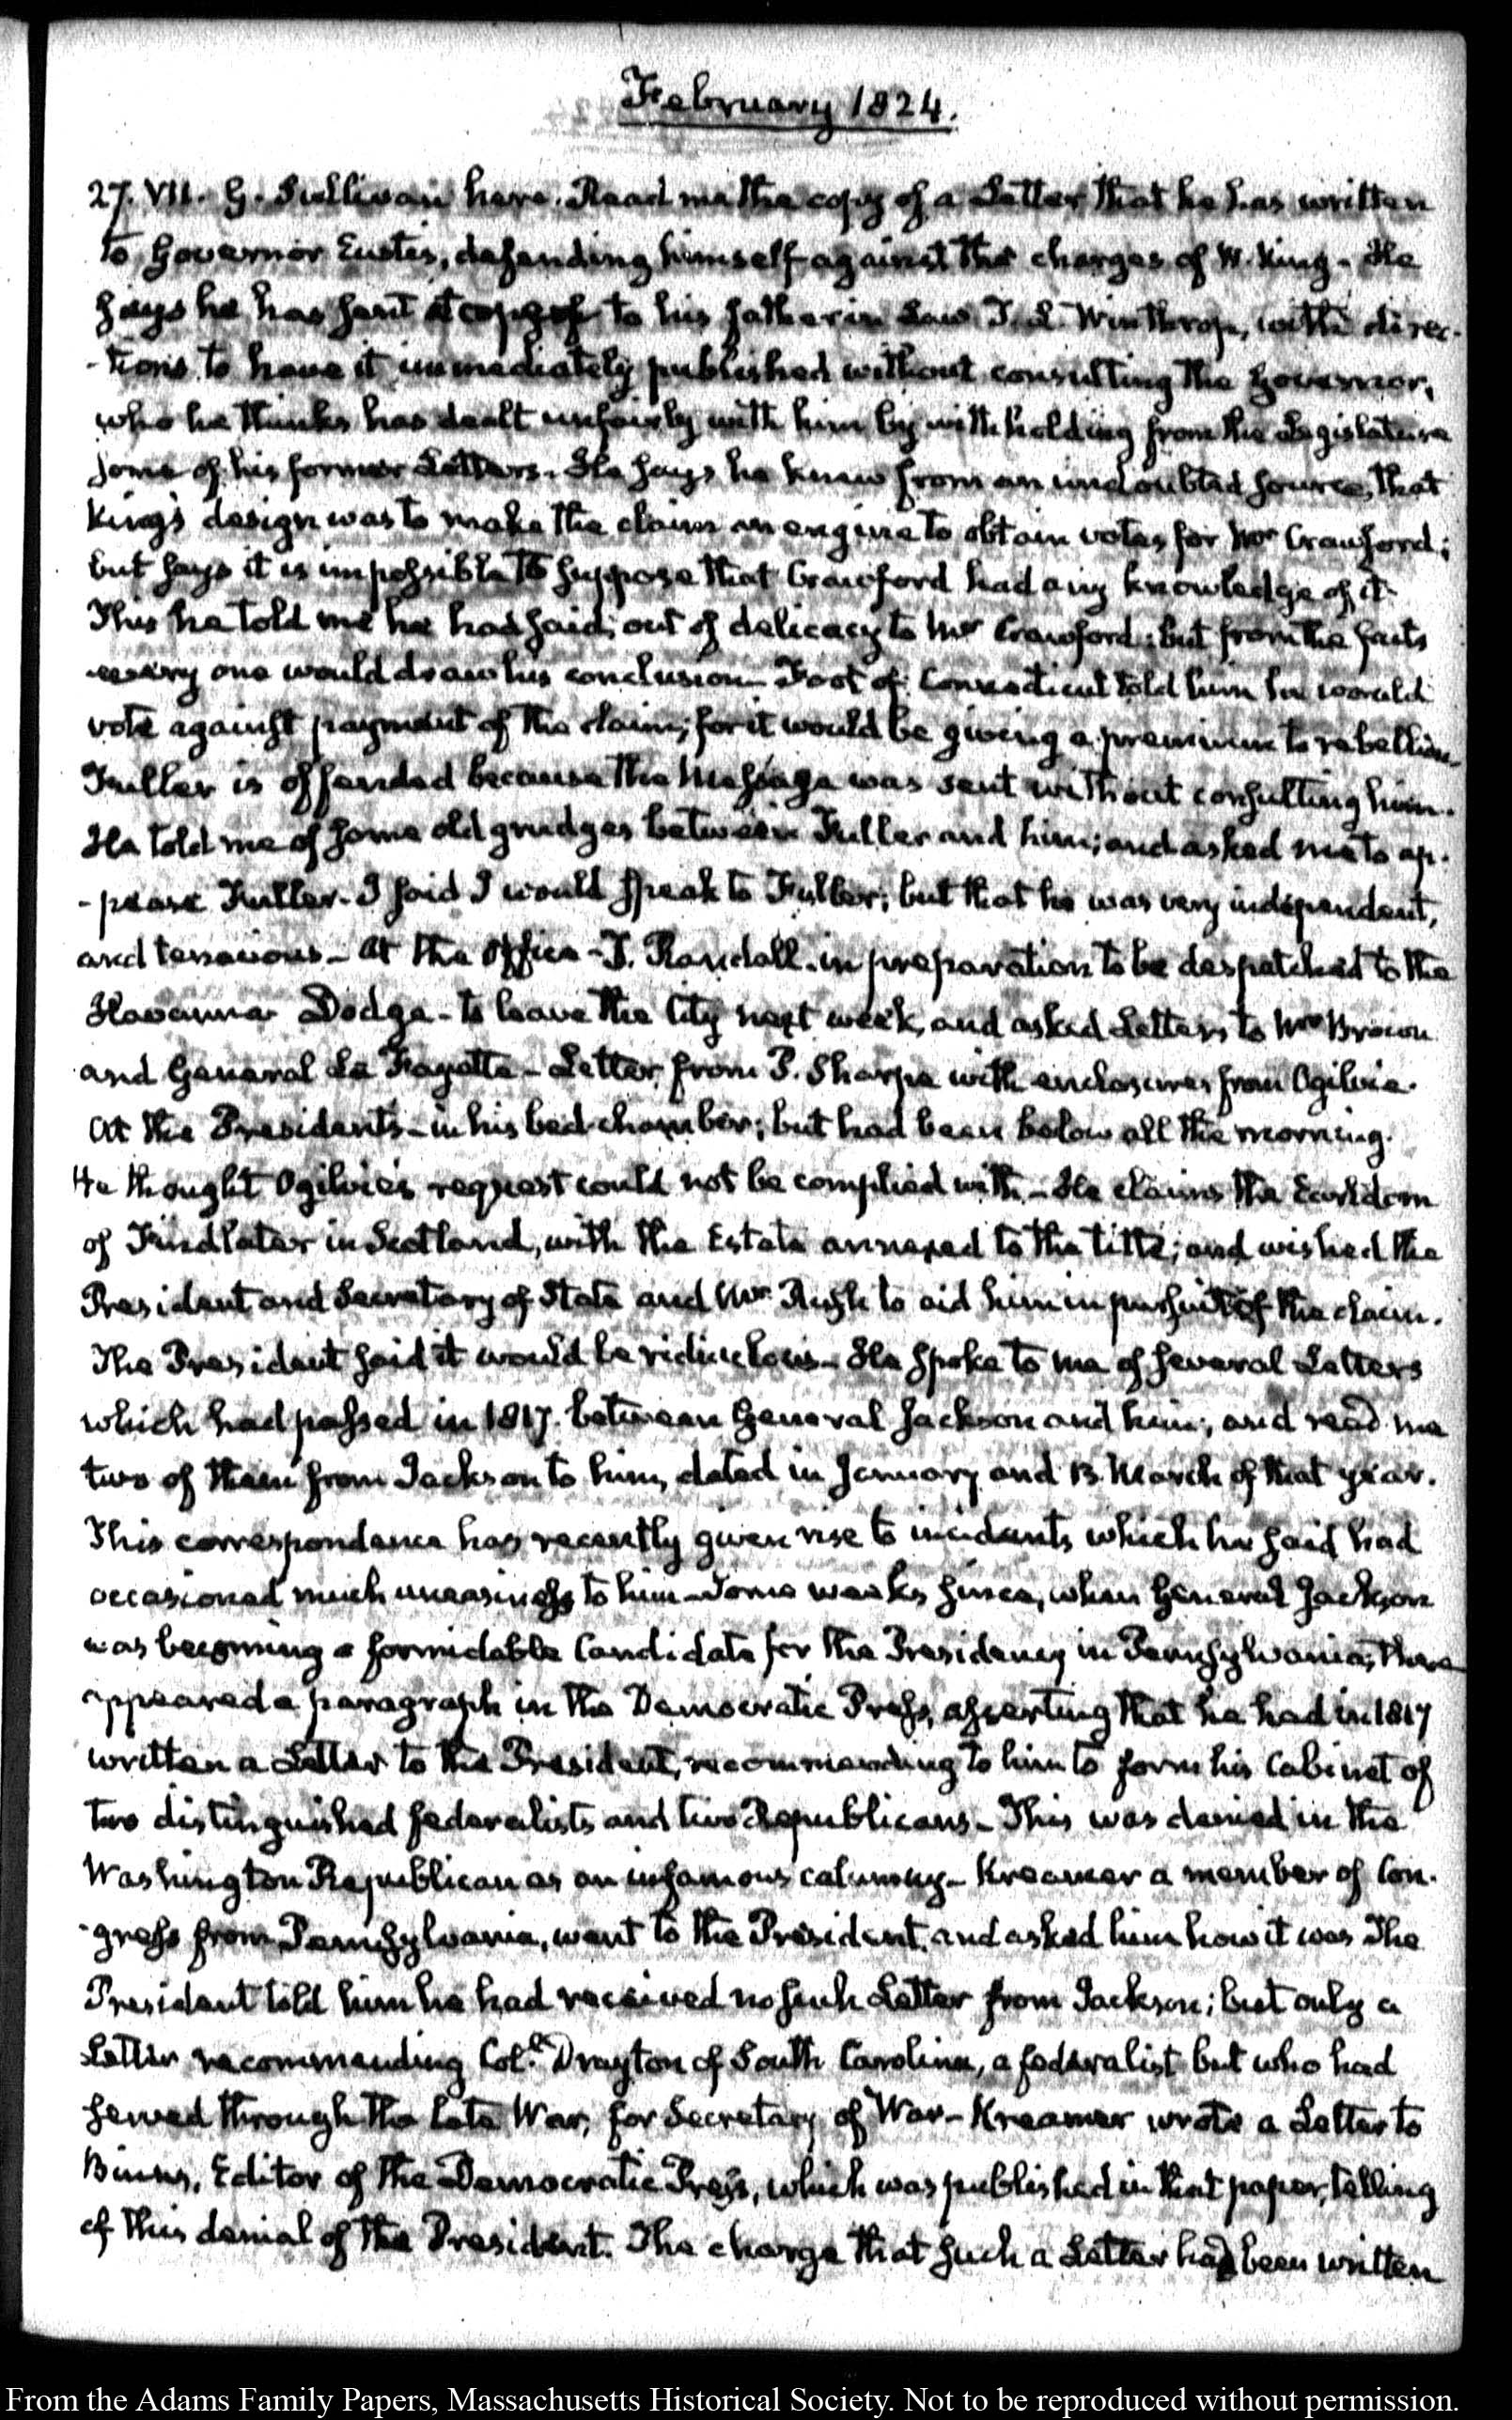 February 1824.
27. VII. G. Sullivan here. Read me the copy of a Letter that he has written
to Governor Eustis, defending himself against the charges of W. King. He
says he has sent to his father in Law T. L. Winthrop, with direc-
-tions to have it immediately published without consulting the Governor,
who he thinks has dealt unfairly with him by withholding from the Legislature
some of his former Letters. He says he knew from an undoubted source, that
King's design was to make the claim an engine to obtain votes for Mr Crawford;
but says it is impossible to suppose that Crawford had any knowledge of it.
This he told me he had said, out of delicacy to Mr Crawford; but from the facts
every one would draw his conclusion. Foot of Connecticut told him he would
vote against payment of the claim; for it would be giving a premium to rebellion.
Fuller is offended because the Message was sent without consulting him.
He told me of some old grudges between Fuller and him; and asked me to ap-
-pease Fuller. I said I would speak to Fuller; but that he was very independent,
and tenacious. At the Office - T. Randall. in preparation to be despatched to the
Havanna Dodge - to leave the City next week, and asked Letters to Mr Brown
and General La Fayette - Letter from P. Sharpe with enclosures from Ogilvie.
At the Presidents - in his bed-chamber; but had been below all the morning.
He thought Ogilvie's request could not be complied with. He claims the Earldom
of Findlater in Scotland, with the Estate annexed to the title; and wished the
President and Secretary of State and Mr Rush to aid him in pursuit of the claim.
The President said it would be ridiculous. He spoke to me of several Letters
which had passed in 1817. between General Jackson and him; and read me
two of them from Jackson to him, dated in January and 13. March of that year.
This correspondence has recently given rise to incidents which he said had
occasioned much uneasiness to him. Some weeks since, when General Jackson
was becoming a formidable Candidate for the Presidency in Pennsylvania, there
appeared a paragraph in the Democratic Press, asserting that he had in 1817
written a Letter to the President, recommending to him to form his Cabinet of
two distinguished federalists and two Republicans. This was denied in the
Washington Republican as an infamous calumny. Kreamer a member of Con-
-gress from Pennsylvania, went to the President, and asked him how it was. The
President told him he had received no such Letter from Jackson; but only a
Letter recommending Coll. Drayton of South Carolina, a federalist but who had
served through the late War, for Secretary of War. Kreamer wrote a Letter to
Binns, Editor of the Democratic Press, which was published in that paper, telling
of this denial of the President. The charge that such a Letter had been written
From the Adams Family Papers, Massachusetts Historical Society. Not to be reproduced without permission.